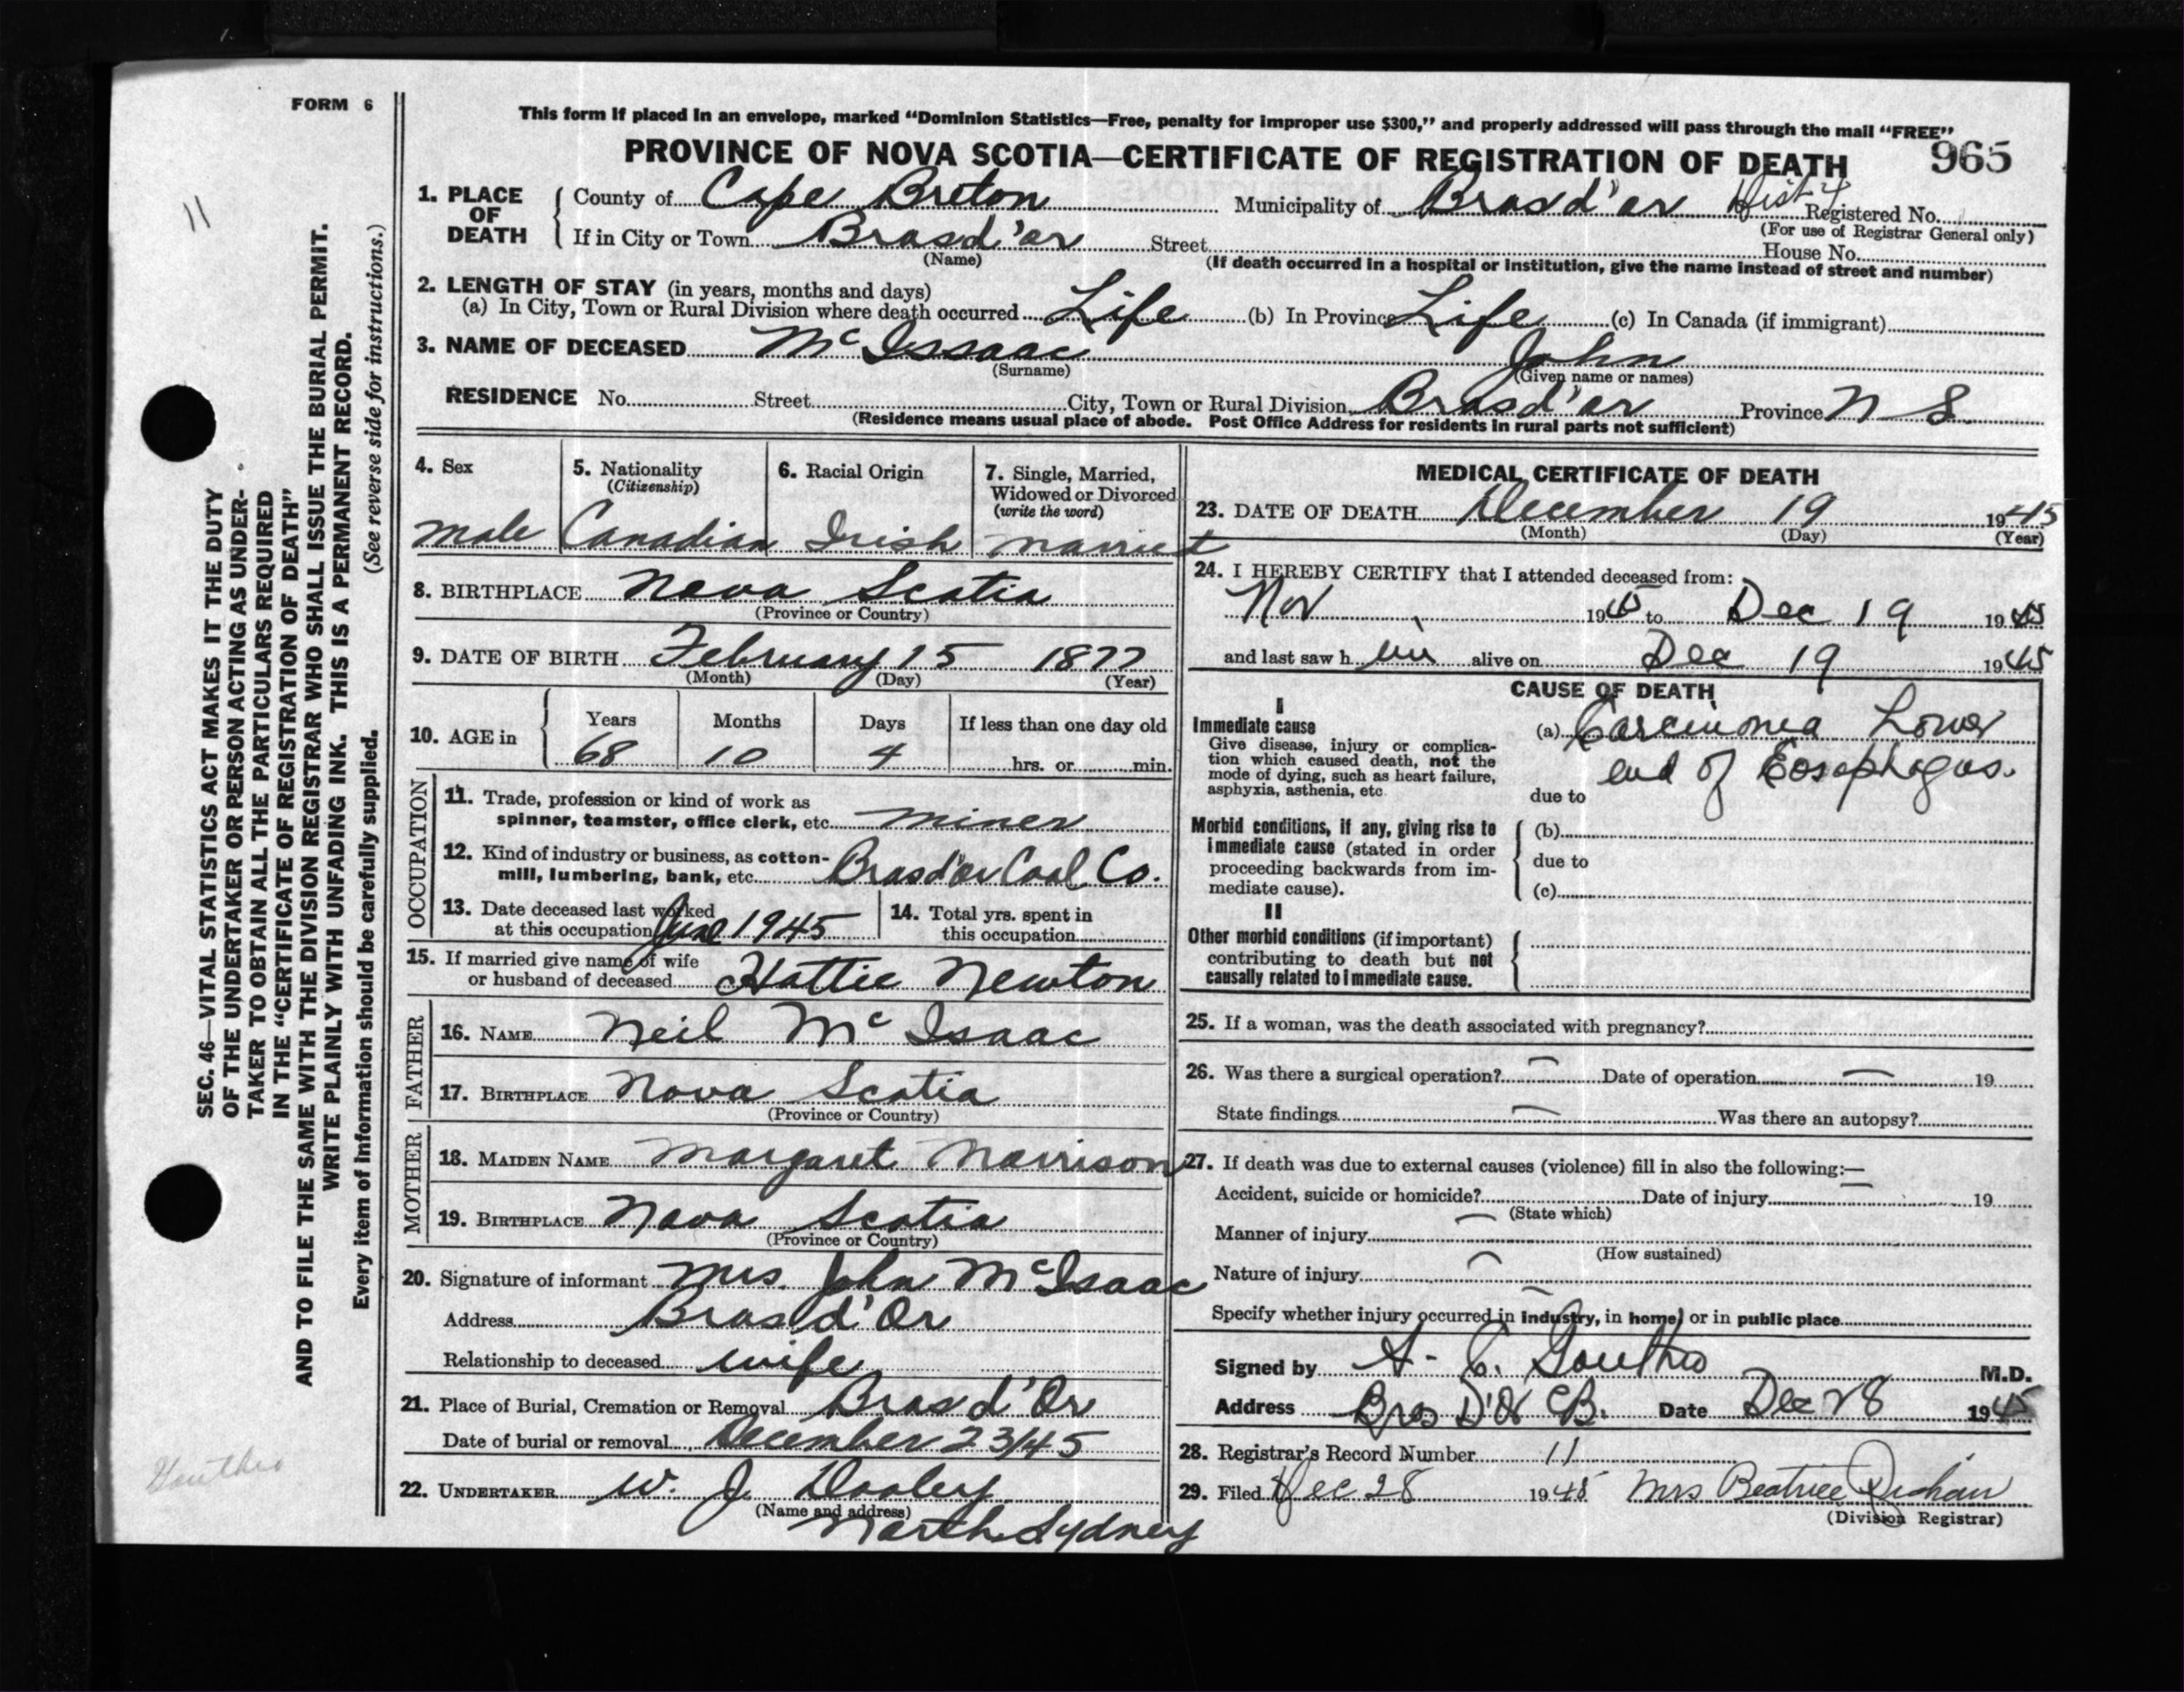 FORM 6
This form if placed in an envelope, marked "Dominion Statistics—Free, penalty for improper use $300," and properly addressed will pass through the mail "FREE"
PROVINCE OF NOVA SCOTIA—CERTIFICATE OF REGISTRATION OF DEATH 965
11
SEC. 46—VITAL STATISTICS ACT MAKES IT THE DUTY
OF THE UNDERTAKER OR PERSON ACTING AS UNDER-
TAKER TO OBTAIN ALL THE PARTICULARS REQUIRED
IN THE "CERTIFICATE OF REGISTRATION OF DEATH"
AND TO FILE THE SAME WITH THE DIVISION REGISTRAR WHO SHALL ISSUE THE BURIAL PERMIT.
WRITE PLAINLY WITH UNFADING INK. THIS IS A PERMANENT RECORD.
Every item of information should be carefully supplied. (See reverse side for instructions.)
1. PLACE OF DEATH County of Cape Breton Municipality of Bras d'or Dist 4 Registered No.
(For use of Registrar General only)
If in City or Town Bras d'or Street House No.
(Name) (If death occurred in a hospital or institution, give the name instead of street and number)
2. LENGTH OF STAY (in years, months and days)
(a) In City, Town or Rural Division where death occurred Life (b) In Province Life (c) In Canada (if immigrant)
3. NAME OF DECEASED McIssaac John
(Surname) (Given name or names)
RESIDENCE No. Street City, Town or Rural Division Bras d'or Province N S.
(Residence means usual place of abode. Post Office Address for residents in rural parts not sufficient)
4. Sex 5. Nationality 6. Racial Origin 7. Single, Married,
(Citizenship) Widowed or Divorced
(write the word)
male Canadian Irish married
8. BIRTHPLACE Nova Scotia
(Province or Country)
9. DATE OF BIRTH February 15 1877
(Month) (Day) (Year)
10. AGE in Years Months Days If less than one day old
68 10 4 hrs. or min.
OCCUPATION
11. Trade, profession or kind of work as
spinner, teamster, office clerk, etc. miner
12. Kind of industry or business, as cotton-
mill, lumbering, bank, etc. Bras d'or Coal Co.
13. Date deceased last worked
at this occupation June 1945
14. Total yrs. spent in
this occupation
15. If married give name of wife
or husband of deceased Hattie Newton
FATHER
16. NAME Neil McIsaac
17. BIRTHPLACE Nova Scotia
(Province or Country)
MOTHER
18. MAIDEN NAME Margaret Morrison
19. BIRTHPLACE Nova Scotia
(Province or Country)
20. Signature of informant Mrs. John McIsaac
Address Bras d'Or
Relationship to deceased wife
21. Place of Burial, Cremation or Removal Bras d'Or
Date of burial or removal December 23/45
22. UNDERTAKER W. J. Dooley
(Name and address)
North Sydney
MEDICAL CERTIFICATE OF DEATH
23. DATE OF DEATH December 19 1945
(Month) (Day) (Year)
24. I HEREBY CERTIFY that I attended deceased from:
Nov 1945 to Dec 19 1945
and last saw him alive on Dec 19 1945
CAUSE OF DEATH
I
Immediate cause
Give disease, injury or complica-
tion which caused death, not the
mode of dying, such as heart failure,
asphyxia, asthenia, etc.
(a) Carcinoma Lower
end of Eosophagus.
due to
Morbid conditions, if any, giving rise to
immediate cause (stated in order
proceeding backwards from im-
mediate cause).
(b)
due to
(c)
II
Other morbid conditions (if important)
contributing to death but not
causally related to immediate cause.
25. If a woman, was the death associated with pregnancy?
26. Was there a surgical operation? — Date of operation — 19
State findings — Was there an autopsy?
27. If death was due to external causes (violence) fill in also the following:—
Accident, suicide or homicide? Date of injury — 19
(State which)
Manner of injury —
(How sustained)
Nature of injury —
Specify whether injury occurred in industry, in home, or in public place
Signed by A. C. Gouthro M.D.
Address Bras D'Or C.B. Date Dec 28 1945
28. Registrar's Record Number 11
29. Filed Dec 28 1945 Mrs Beatrice
(Division Registrar)
Gouthro